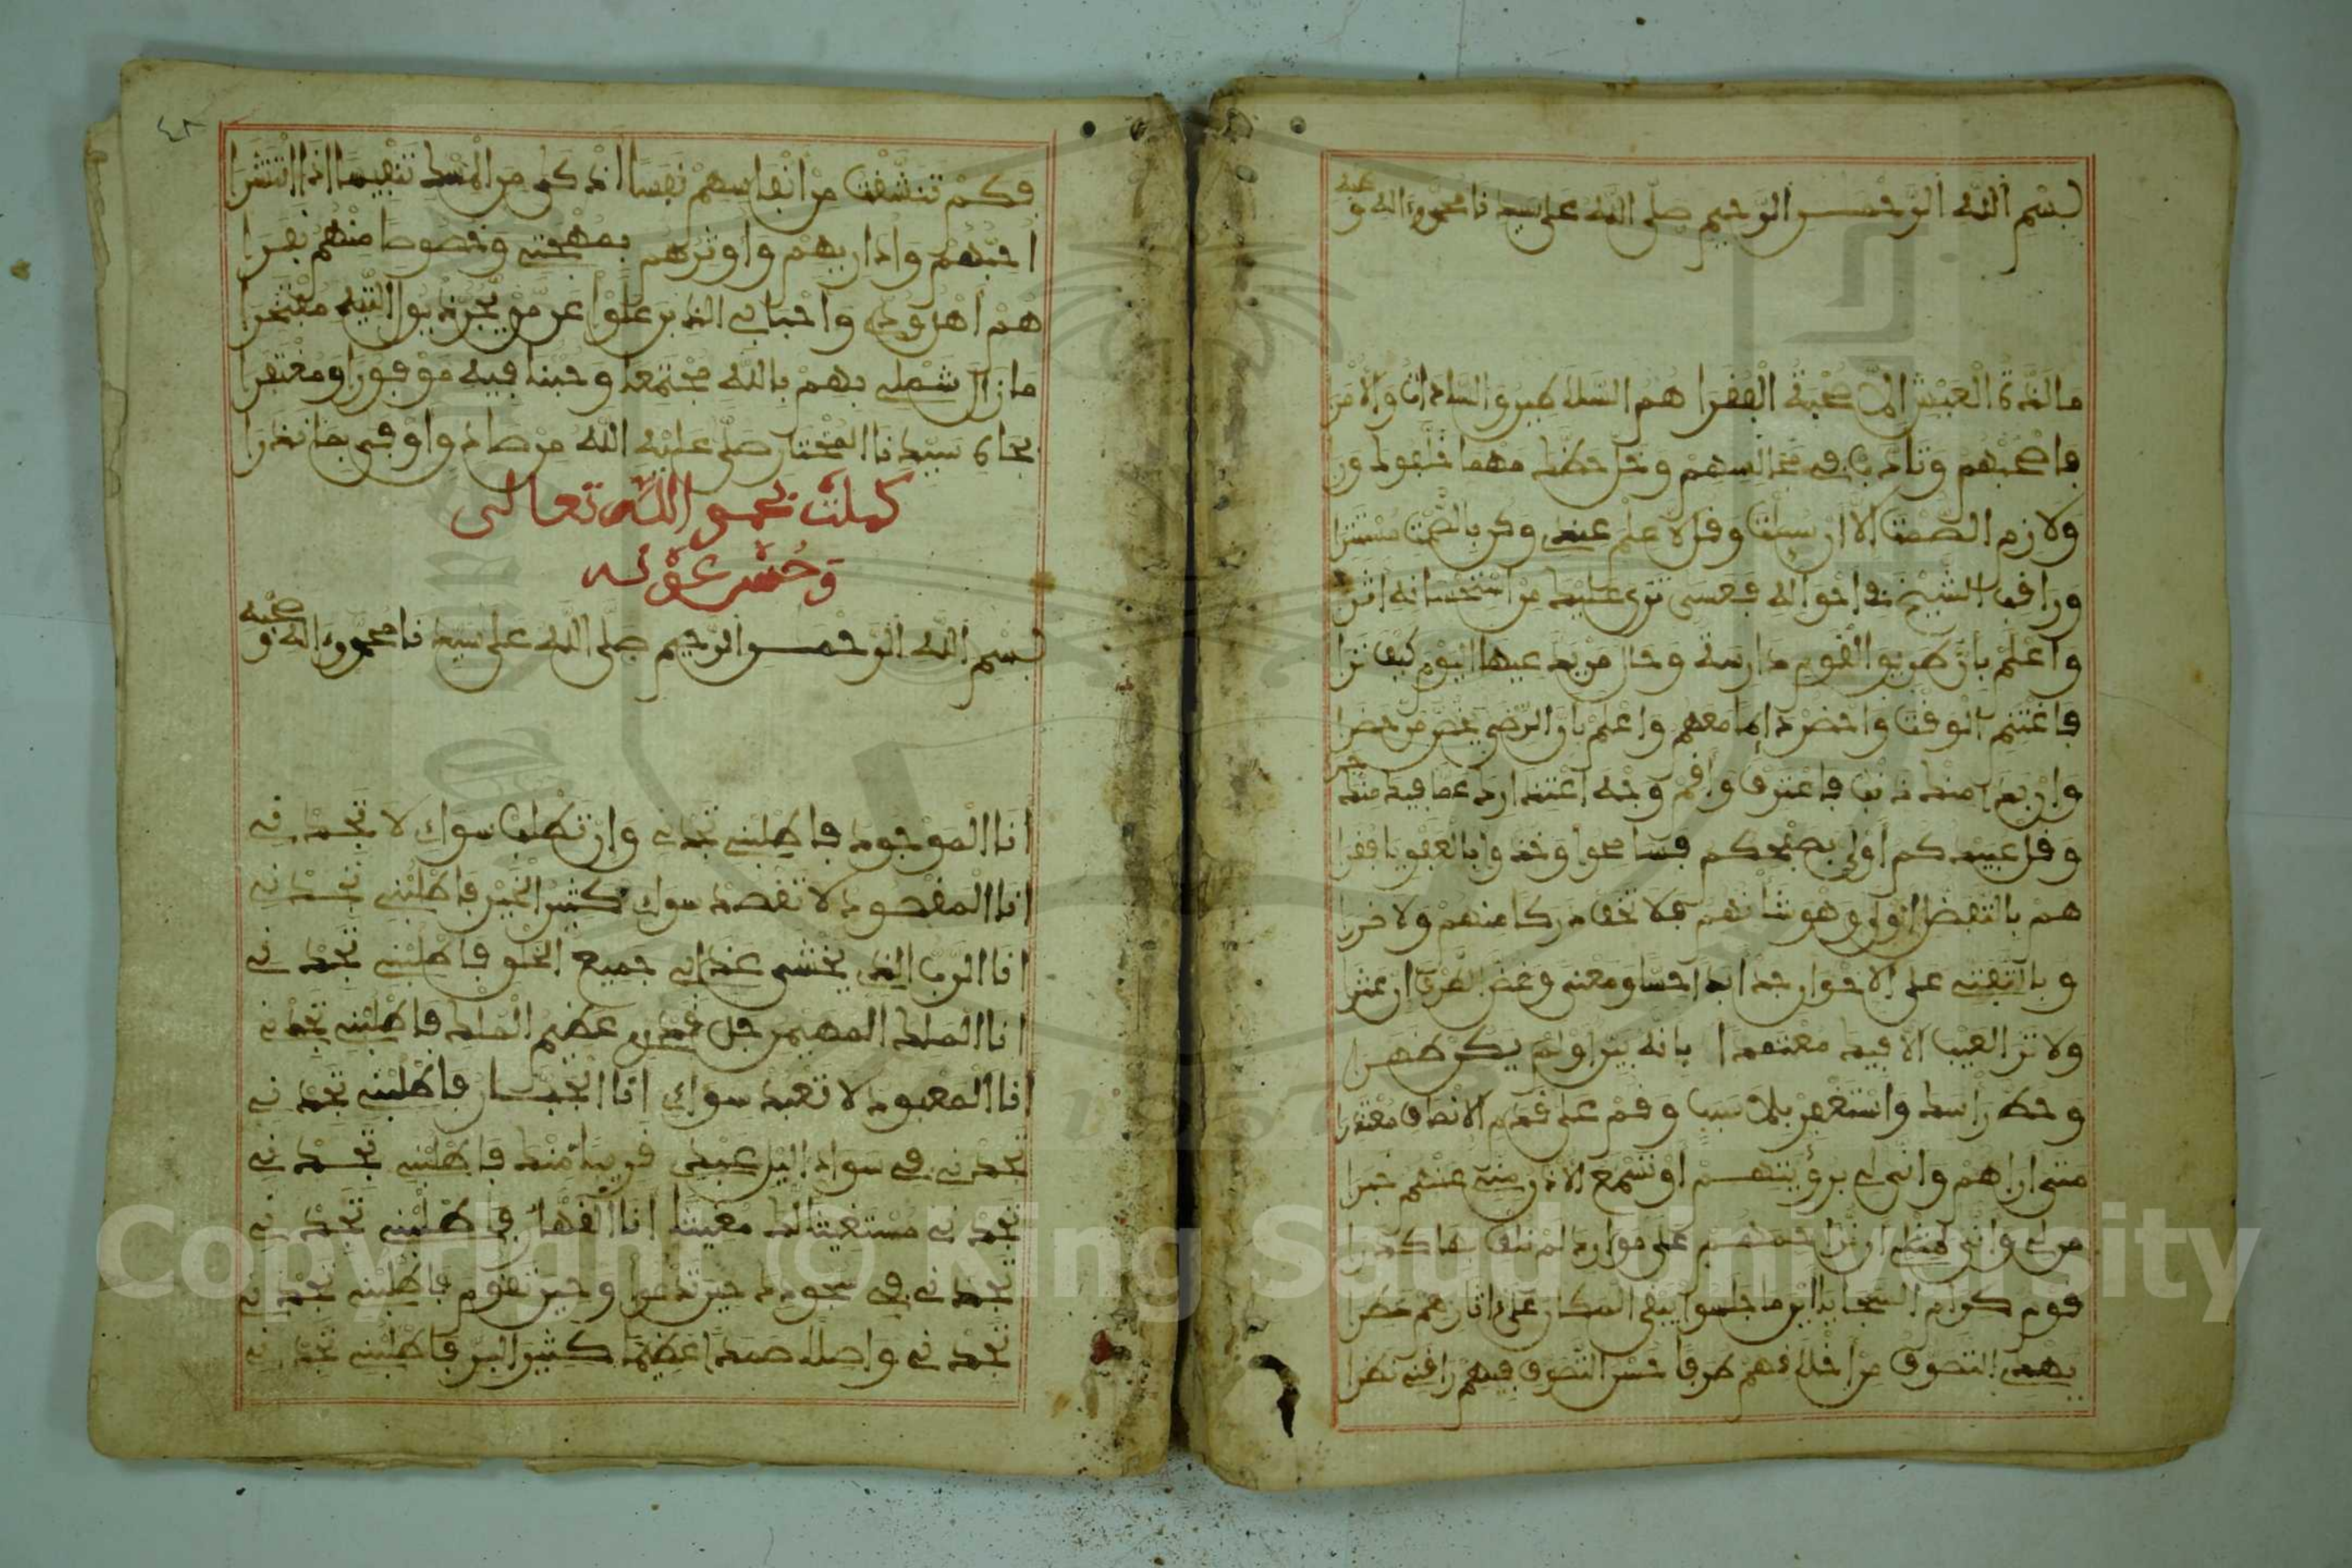 بسم الله الرحمن الرحيم صلى الله على سيدنا محمد واله و
ما لذة العيش الا صحبة الفقرا هم السلاطين والسادات والامرا
فاصحبهم وتادب في مجالسهم وخل حظك مهما خلفوك ورا
ولازم الصمت الا ان سئلت وقل لا علم عندي وكن بالصمت مستترا
وراقب الشيخ في احواله فعسى ترى عليك من استحسانه اثرا
واعلم بان طريق القوم دارسة وحال من يدعيها اليوم كيف ترا
فاغتنم الوقت واحضر دايما معهم واعلم بان الرضى يخص من حضرا
وان بدا منك ذنب فاعترف واقم وجه اعتذارك عما فيك منك جر
وقل عبيدكم اولى بصفحكم فسامحوا وخذوا بالعفو يا فقرا
هم بالتفضل اولى وهو شانهم فلا تخف دركا منهم ولا ضررا
وبالتفتي على الاخوان جد ابدا حسا ومعنى وغض الطرف ان عثرا
ولا تر العيب الا فيك معتقدا بانه بين ولو لم يكن ظهرا
وحط راسك واستغفر بلا سبب وقم على قدم الانصاف معتذرا
متى اراهم وانى لي برؤيتهم او تسمع الاذن مني عنهم خبرا
من لي وانى لمثلي ان يزاحمهم على موارد لم نلف بها كدرا
قوم كرام السجايا اين ما جلسوا يبقى المكان على اثارهم عطرا
يهدي التصوف من اخلاقهم طرفا حسن التصوف فيهم راقني نظرا
٤٢
فكم تنشقت من انفاسهم نفسا اذكى من المسك تنفيسا اذا انتشرا
احبهم واداريهم واوثرهم بمهجتي وخصوصا منهم نفرا
هم اهل ودي واحبابي الذين علوا عن من يجر ذيول التيه مفتخرا
ما زال شملي بهم بالله مجتمعا وحبنا فيه موفورا ومغتفرا
بجاه سيدنا المختار صلى عليه الله من صاد واوفى بما نذرا
كملت بحمد الله تعالى
وحسن عونه
بسم الله الرحمن الرحيم صلى الله على سيدنا محمد واله و صحبه
انا الموجود فاطلبني تجدني وان تطلب سواي لا تجدني
انا المقصود لا تقصد سواي كثير الخير فاطلبني تجدني
انا الرب الذي يخشى عذابي جميع الخلق فاطلبني تجدني
انا الملك المهيمن جل قدري عظيم الملك فاطلبني تجدني
انا المعبود لا تعبد سواي انا الجبار فاطلبني تجدني
تجدني في سواد اليل عبدي قريبا منك فاطلبني تجدني
تجدني مستغيثا لك مغيثا انا القهار فاطلبني تجدني
تجدني في سجودك حين تدعوا وحين تقوم فاطلبني تجدني
تجدني واصلا صمدا عظيما كثير البر فاطلبني تجدني
Copyright © King Saud University
1957